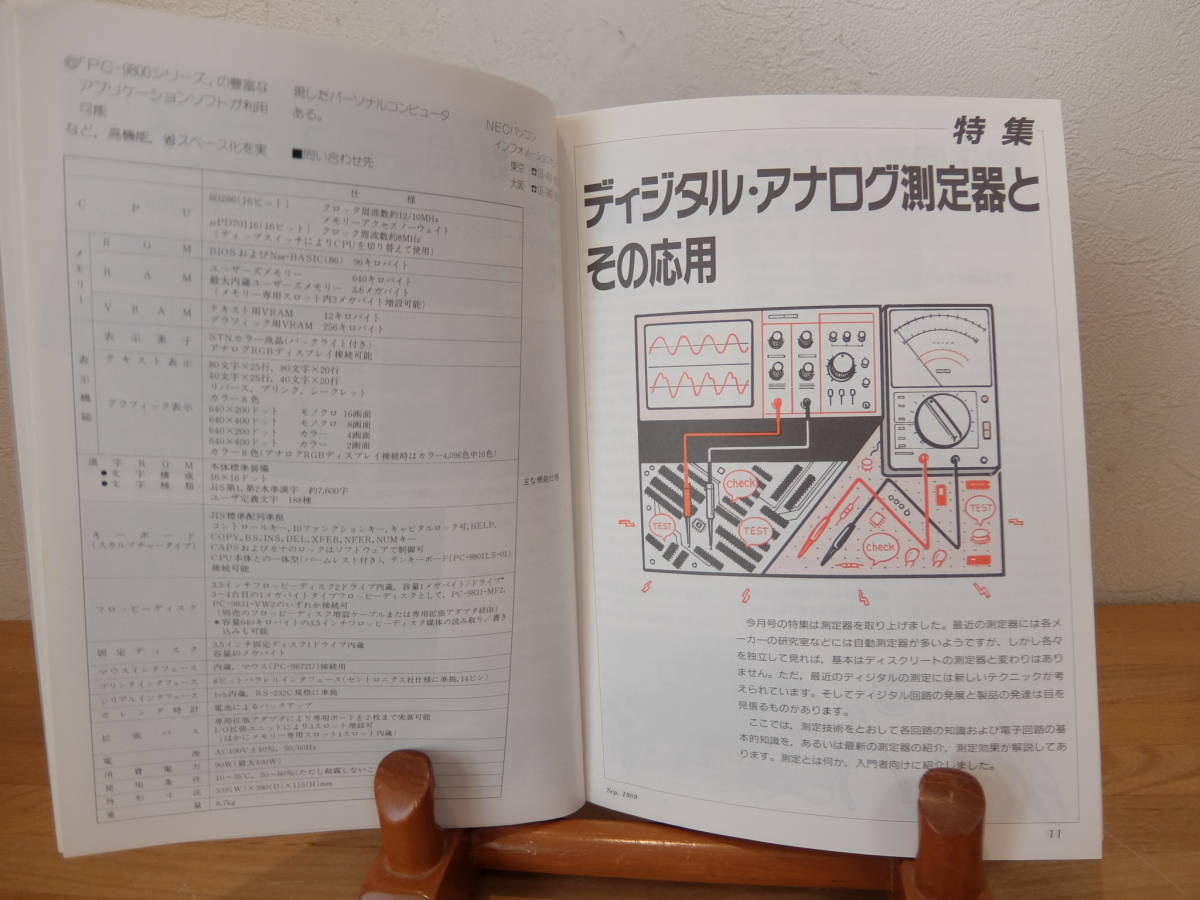 ⑥「PC-9800シリーズ」の豊富な
アプリケーションソフトが利用
可能
など，高機能，省スペース化を実
現したパーソナルコンピュータ
ある。
■問い合わせ先
NECパソコン
インフォメーション
東京
大阪
仕様
CPU
80286(16ビット) クロック周波数約12/10MHz
メモリーアクセスノーウェイト
μPD70116(16ビット) クロック周波数約8MHz
(ディップスイッチによりCPUを切り替えて使用)
メモリー
ROM
BIOSおよびN88-BASIC(86) 96キロバイト
RAM
ユーザーズメモリー 640キロバイト
最大内蔵ユーザーズメモリー 3.6メガバイト
(メモリー専用スロット内3メガバイト増設可能)
VRAM
テキスト用VRAM 12キロバイト
グラフィック用VRAM 256キロバイト
表示機能
表示素子
STNカラー液晶(バックライト付き)
アナログRGBディスプレイ接続可能
テキスト表示
80文字×25行，80文字×20行
40文字×25行，40文字×20行
リバース，ブリンク，シークレット
カラー8色
グラフィック表示
640×200ドット モノクロ 16画面
640×400ドット モノクロ 8画面
640×200ドット カラー 4画面
640×400ドット カラー 2画面
カラー8色(アナログRGBディスプレイ接続時はカラー4,096色中16色)
漢字ROM
●文字構成
●文字種類
本体標準装備
16×16ドット
JIS第1，第2水準漢字 約7,600字
ユーザ定義文字 188種
主な機能仕様
キーボード
(スカルプチャータイプ)
JIS標準配列準拠
コントロールキー，10ファンクションキー，キャピタルロック可，HELP，
COPY，BS，INS，DEL，XFER，NFER，NUMキー
CAPSおよびカナのロックはソフトウェアで制御可
CPU本体との一体型(パームレスト付き)，テンキーボード(PC-9801LS-01)
接続可能
フロッピーディスク
3.5インチフロッピーディスク2ドライブ内蔵，容量1メガバイト/ドライブ*
3～4台目の1メガバイトタイプフロッピーディスクとして，PC-9831-MF2，
PC-9831-VW2のいずれか接続可
(別売のフロッピーディスク増設ケーブルまたは専用拡張アダプタ経由)
*容量640キロバイトの3.5インチフロッピーディスク媒体の読み取り／書き
込みも可能
固定ディスク
3.5インチ固定ディスク1ドライブ内蔵
容量40メガバイト
マウスインタフェース
内蔵，マウス(PC-9872U)接続用
プリンタインタフェース
8ビット・パラレルインタフェース(セントロニクス社仕様に準拠，14ピン)
シリアルインタフェース
1ch内蔵，RS-232C規格に準拠
カレンダ時計
電池によるバックアップ
拡張バス
専用拡張アダプタにより専用ボードを2枚まで実装可能
I/O拡張ユニットにより3スロット増設可
(ほかにメモリー専用スロット1スロット内蔵)
電源
AC100V±10%，50/60Hz
消費電力
90W(最大100W)
使用条件
10～35℃，20～80%(ただし結露しないこ
外形寸法
339(W)×380(D)×115(H)mm
重量
8.7kg
特集
ディジタル・アナログ測定器と
その応用
Check
TEST
TEST
TEST
check
今月号の特集は測定器を取り上げました。最近の測定器には各メ
ーカーの研究室などには自動測定器が多いようですが，しかし各々
を独立して見れば，基本はディスクリートの測定器と変わりはあり
ません。ただ，最近のディジタルの測定には新しいテクニックが考
えられています。そしてディジタル回路の発展と製品の発達は目を
見張るものがあります。
ここでは，測定技術をとおして各回路の知識および電子回路の基
本的知識を，あるいは最新の測定器の紹介，測定効果が解説してあ
ります。測定とは何か，入門者向けに紹介しました。
Sep. 1989
11